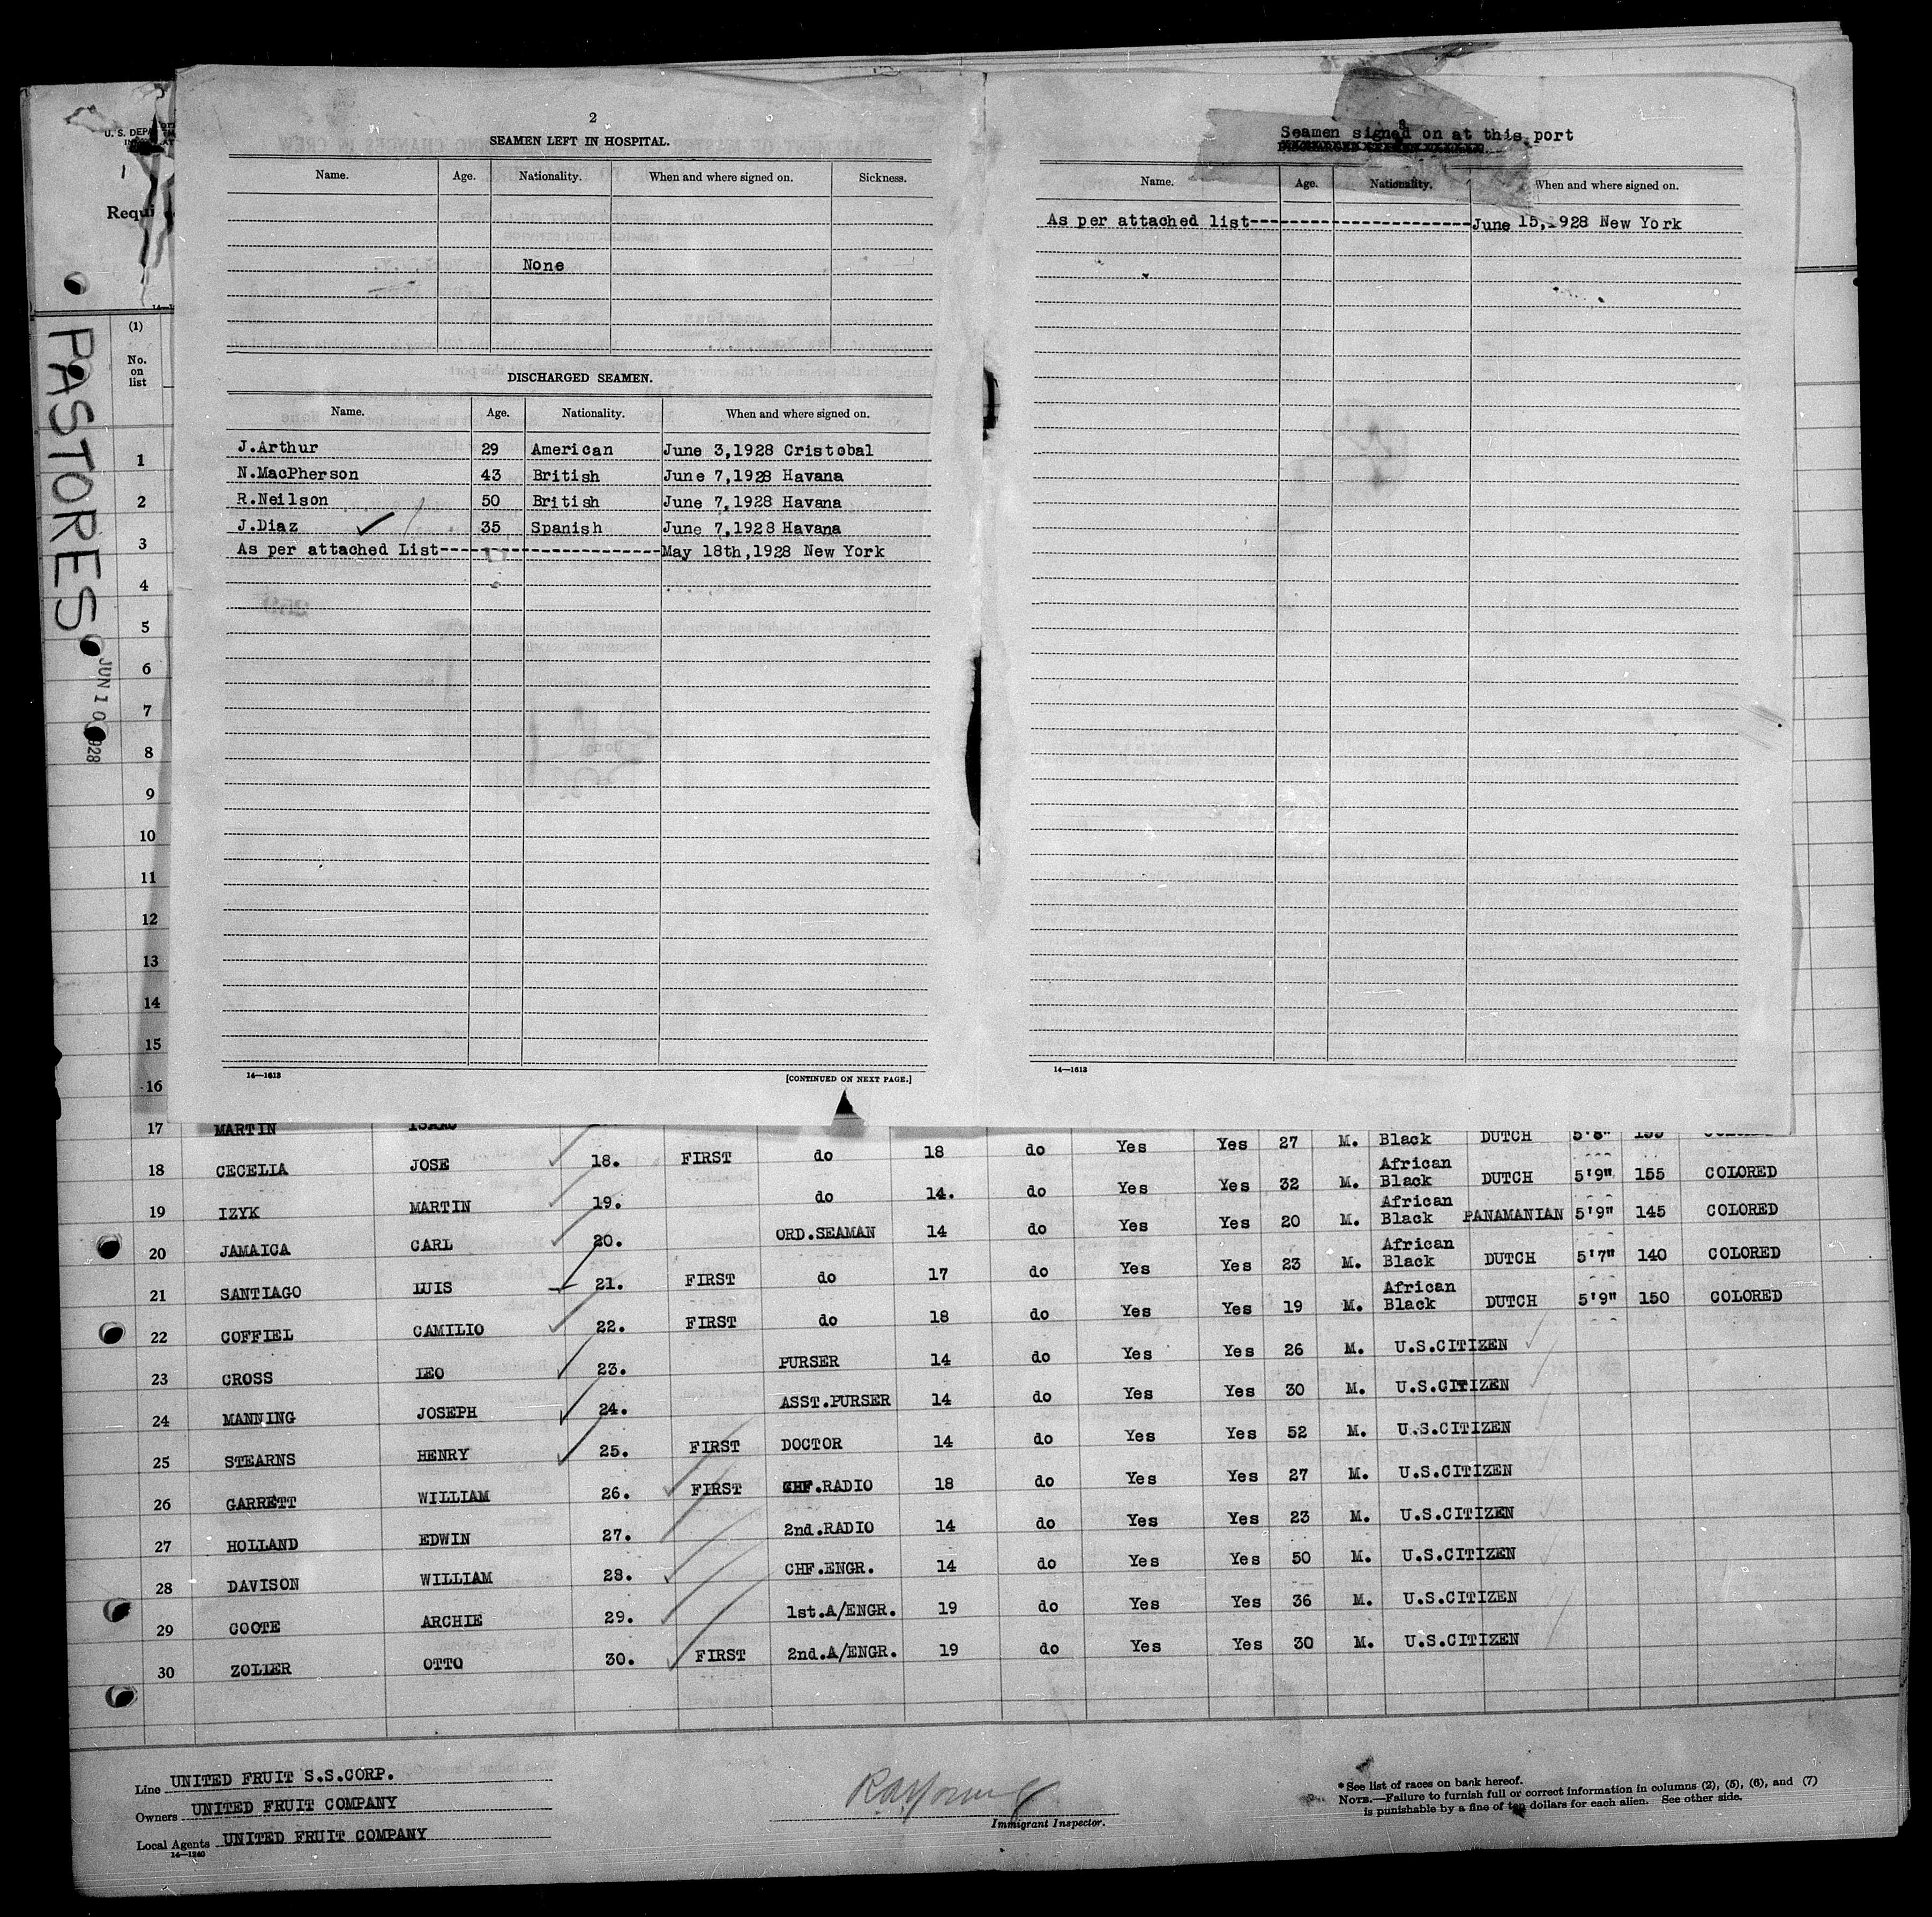 U. S. DEPA
Requi
PASTORES
JUN 10 1928
(1)
No.
on
list
1
2
3
4
5
6
7
8
9
10
11
12
13
14
15
16
2
SEAMEN LEFT IN HOSPITAL.
Name. Age. Nationality. When and where signed on. Sickness.
None
DISCHARGED SEAMEN.
Name. Age. Nationality. When and where signed on.
J.Arthur 29 American June 3,1928 Cristobal
N.MacPherson 43 British June 7,1928 Havana
R.Neilson 50 British June 7,1928 Havana
J.Diaz 35 Spanish June 7,1928 Havana
As per attached List-------------------May 18th,1928 New York
14—1613
[CONTINUED ON NEXT PAGE.]
3
Seamen signed on at this port
Name. Age. Nationality. When and where signed on.
As per attached list----------------------June 15,1928 New York
14—1613
17 MARTIN ISAAC
18 CECELIA JOSE 18. FIRST do 18 do Yes Yes 27 M. Black DUTCH 5'8" 155 COLORED
19 IZYK MARTIN 19. do 14. do Yes Yes 32 M. African Black DUTCH 5'9" 155 COLORED
20 JAMAICA CARL 20. ORD.SEAMAN 14 do Yes Yes 20 M. African Black PANAMANIAN 5'9" 145 COLORED
21 SANTIAGO LUIS 21. FIRST do 17 do Yes Yes 23 M. African Black DUTCH 5'7" 140 COLORED
22 COFFIEL CAMILIO 22. FIRST do 18 do Yes Yes 19 M. African Black DUTCH 5'9" 150 COLORED
23 CROSS LEO 23. PURSER 14 do Yes Yes 26 M. U.S.CITIZEN
24 MANNING JOSEPH 24. ASST.PURSER 14 do Yes Yes 30 M. U.S.CITIZEN
25 STEARNS HENRY 25. FIRST DOCTOR 14 do Yes Yes 52 M. U.S.CITIZEN
26 GARRETT WILLIAM 26. FIRST CHF.RADIO 18 do Yes Yes 27 M. U.S.CITIZEN
27 HOLLAND EDWIN 27. 2nd.RADIO 14 do Yes Yes 23 M. U.S.CITIZEN
28 DAVISON WILLIAM 28. CHF.ENGR. 14 do Yes Yes 50 M. U.S.CITIZEN
29 COOTE ARCHIE 29. 1st.A/ENGR. 19 do Yes Yes 36 M. U.S.CITIZEN
30 ZOLIER OTTO 30. FIRST 2nd.A/ENGR. 19 do Yes Yes 30 M. U.S.CITIZEN
Line UNITED FRUIT S.S.CORP.
Owners UNITED FRUIT COMPANY
Local Agents UNITED FRUIT COMPANY
14—1240
Immigrant Inspector.
*See list of races on back hereof.
NOTE.—Failure to furnish full or correct information in columns (2), (5), (6), and (7)
is punishable by a fine of ten dollars for each alien. See other side.